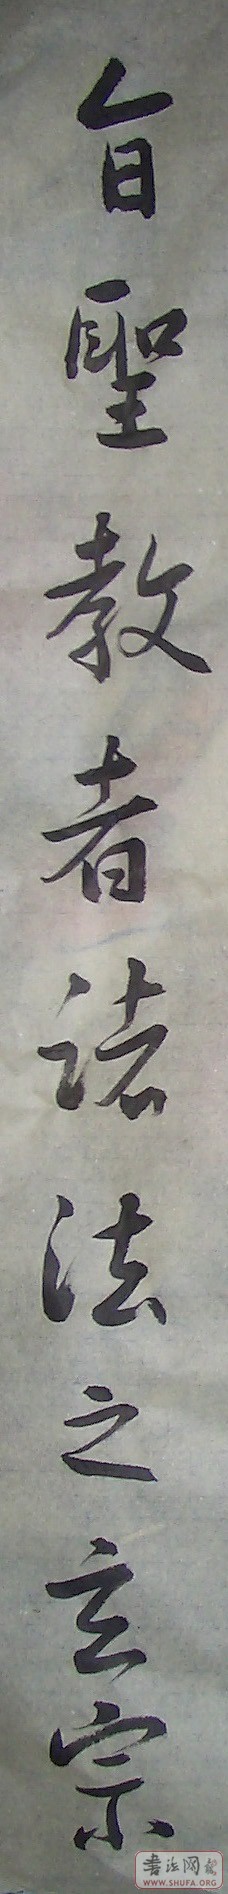 旨聖教者諸法之玄宗
書法网
WWW.SHUFA.ORG